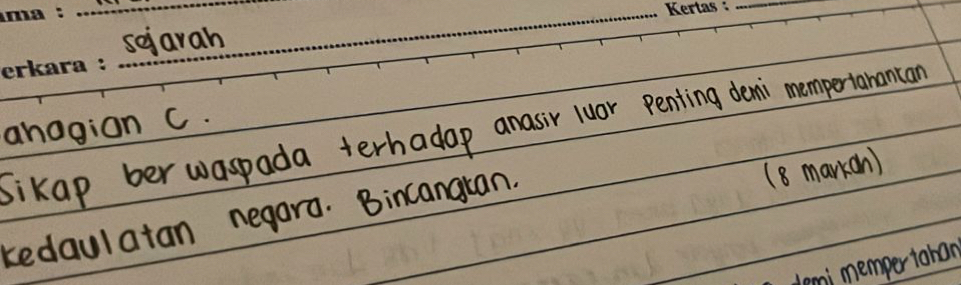 ama :
Kertas :
erkara : sejarah
ahagian C.
Sikap berwaspada terhadap anasir luar penting demi mempertahankan
kedaulatan negara. Bincangkan.
(8 markah)
demi mempertahan